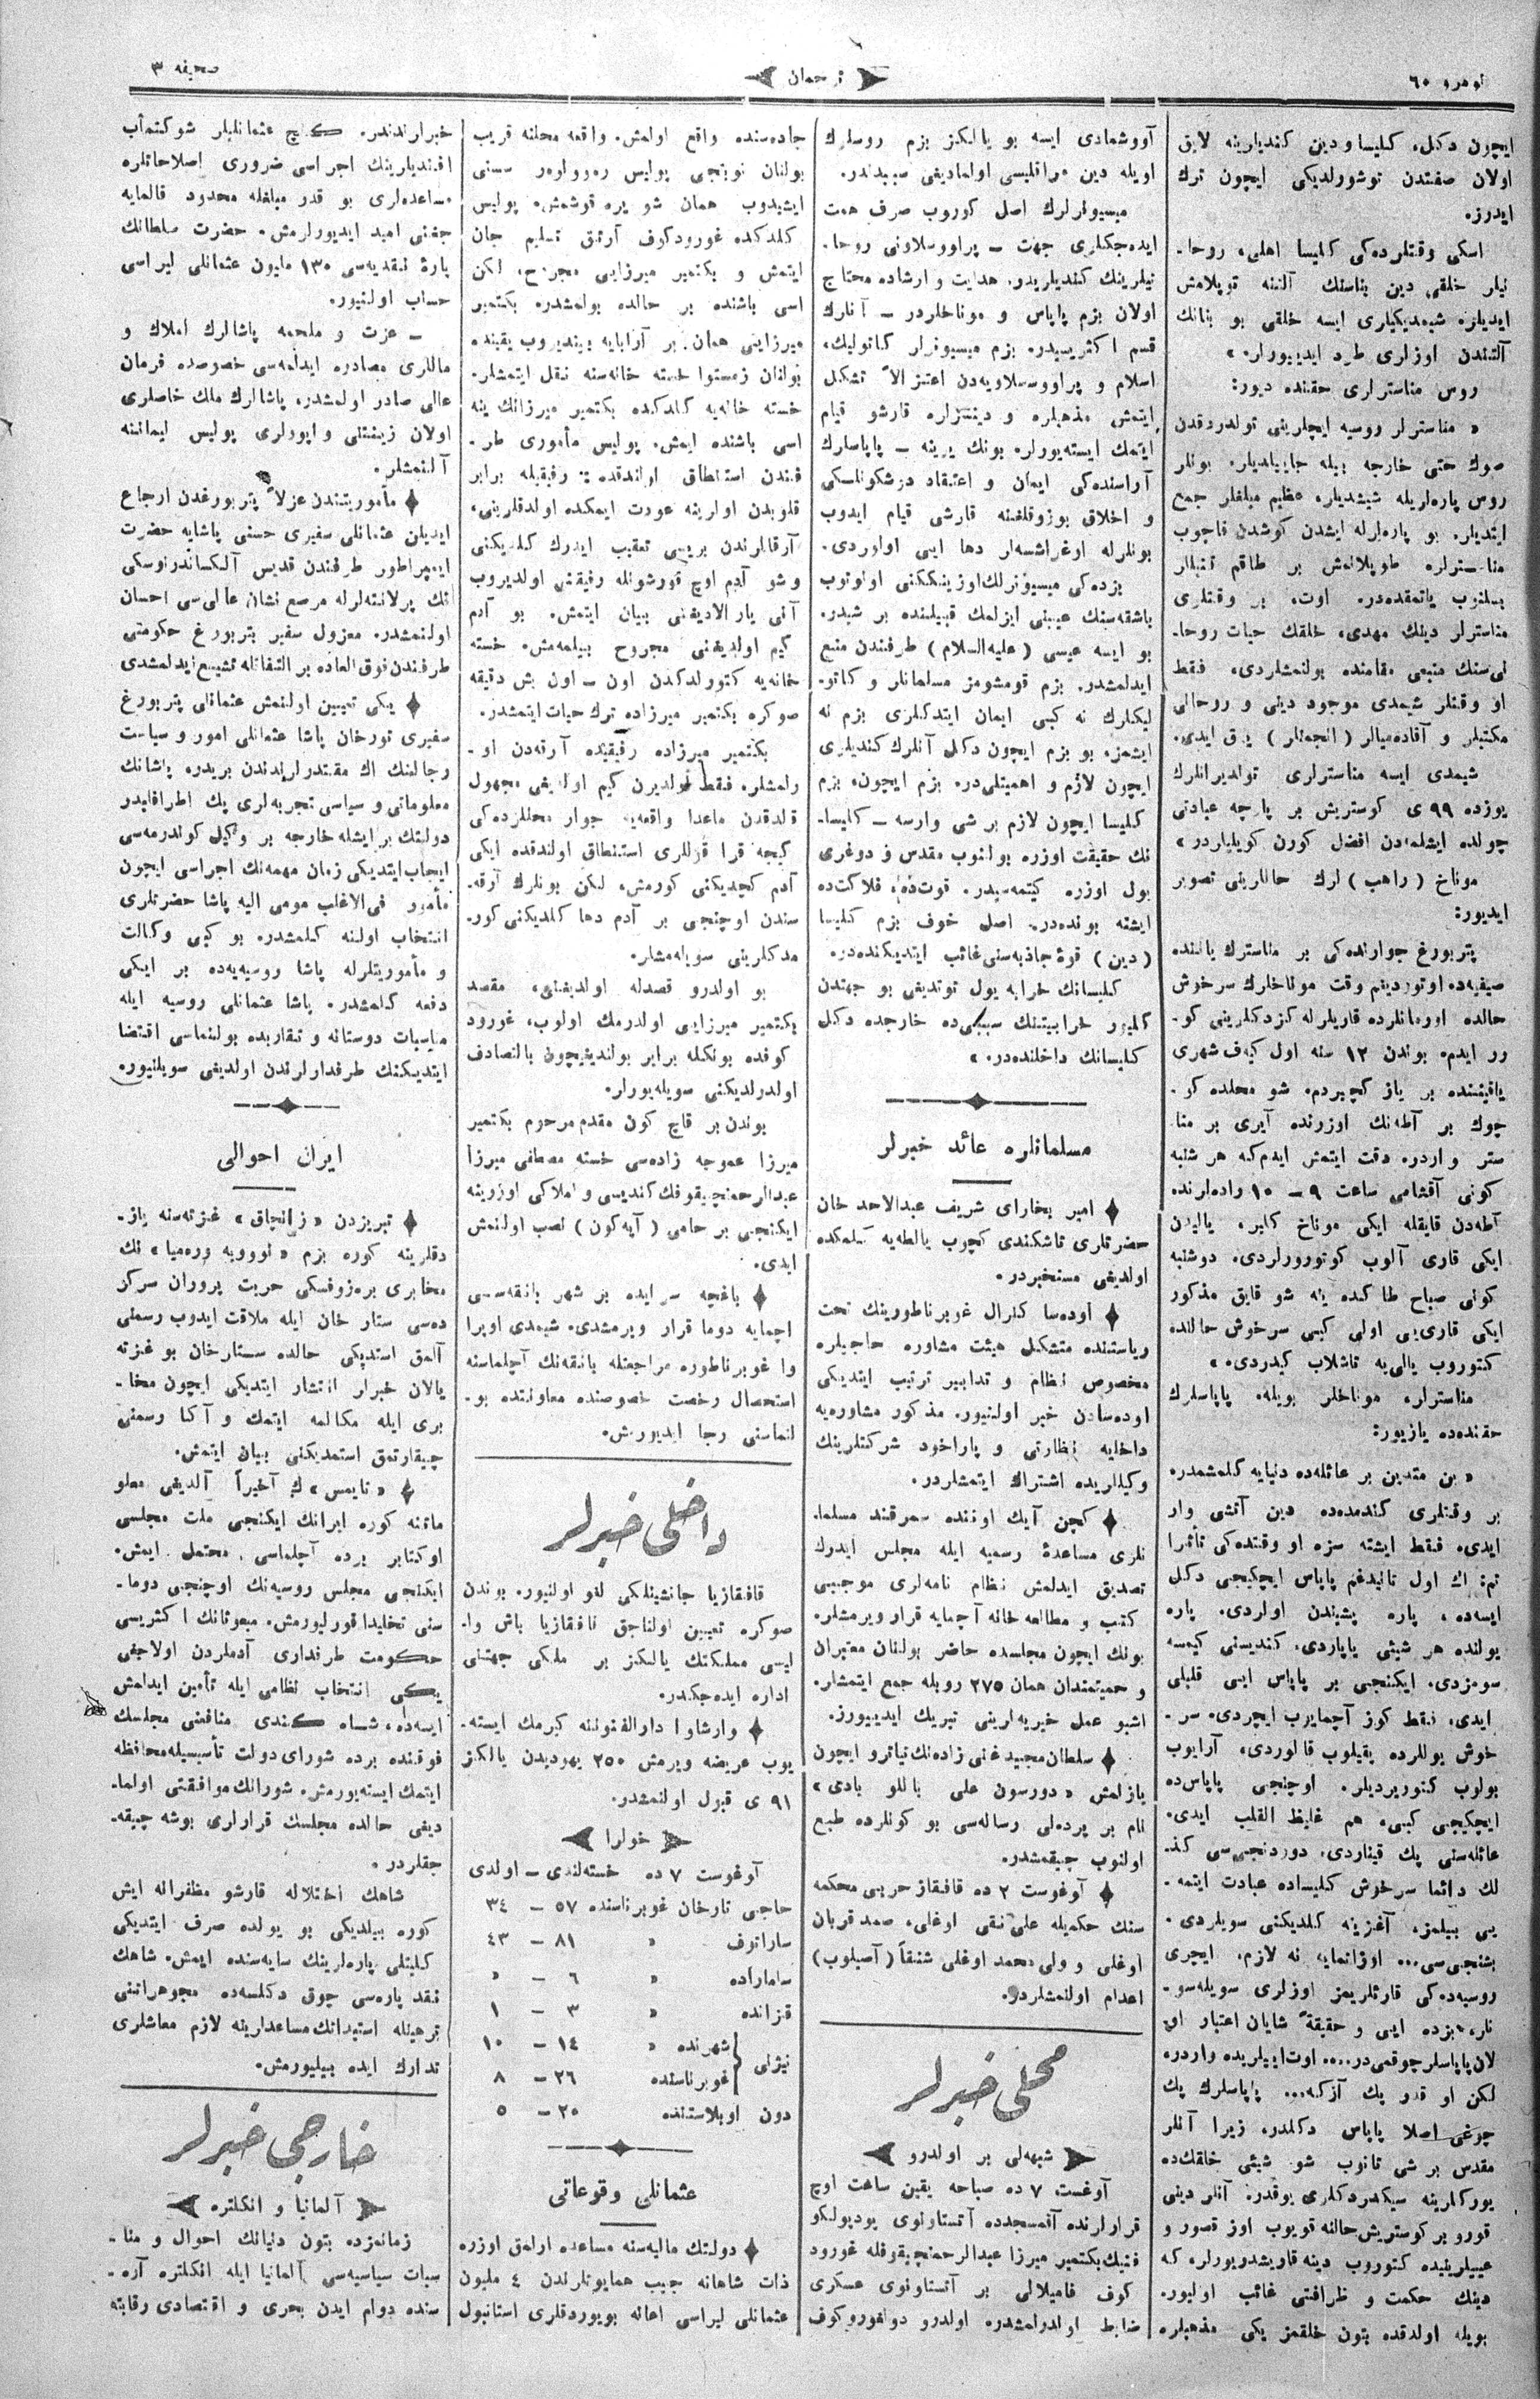 نومرو ٦٠
ترجمان
صحيفه ٣
ايچون دكل، كليسا و دين كنديلرينه لايق
اولان صفتندن توشورلديكى ايچون ترك
ايدرز.
اسكى وقتلرده‌كى كليسا اهلى، روحا-
نيلر خلقى دين بناسنك آلتنه توپلامش
ايديلر، شيمديكيلرى ايسه خلقى بو بنانك
آلتندن اوزلرى طرد ايدييورلر. »
روس مناسترلرى حقنده ديور:
« مناسترلر روسيه ايچلرينى تولدردقدن
صوك حتى خارجه بيله جاييلديلر. بونلر
روس پاره‌لريله شيشديلر، عظيم مبلغلر جمع
ايتديلر. بو پاره‌لرله ايشدن كوشدن قاچوب
مناسترلره طوپلانمش بر طاقم تنبللر
بسلنوب ياتمقده‌در. اوت، بر وقتلرى
مناسترلر دينك مهدى، خلقك حيات روحا-
نى‌سنك منبعى مقامنده بولنمشلردى، فقط
او وقتلر شيمدى موجود دينى و روحانى
مكتبلر و آقاده‌ميالر (انجمنلر) يوق ايدى.
شيمدى ايسه مناسترلرى تولديرانلرك
يوزده ٩٩ ى كوستريش بر پارچه عبادتى
چولده ايشله‌مه‌دن افضل كورن كويليلردر»
موناخ (راهب) لرك حاللرينى تصوير
ايديور:
پتربورغ جوارنده‌كى بر مناسترك ياننده
صيفيه‌ده اوتورديغم وقت موناخلرك سرخوش
حالده اورمانلرده قاريلرله كزدكلرينى كو-
رر ايدم. بوندن ١٢ سنه اول كيه‌ف شهرى
ياقيننده بر ياز كچيردم. شو محلده كو-
چوك بر آطه‌نك اوزرنده آيرى بر منا-
ستر واردر. دقت ايتمش ايدم كه هر شنبه
كونى آقشامى ساعت ٩ – ١٠ راده‌لرنده
آطه‌دن قايقله ايكى موناخ كلير، ياليدن
ايكى قارى آلوب كوتورورلردى. دوشنبه
كونى صباح طاكده ينه شو قايق مذكور
ايكى قارى‌يى اولى كبى سرخوش حالنده
كتوروب يالى‌يه تاشلاب كيدردى. »
مناسترلر، موناخلر بويله، پاپاسلرك
حقنده‌ده يازيور:
« بن متدين بر عائله‌ده دنيايه كلمشمدر.
بر وقتلرى كندمده‌ده دين آتشى وار
ايدى. فقط ايشته سزه او وقتده‌كى تأثرا-
تم: اك اول تانيدغم پاپاس ايچكيجى دكل
ايسه‌ده، پاره پشيندن اولردى. پاره
يولنده هر شيئى ياپاردى. كنديسنى كيمسه
سومزدى. ايكنجى بر پاپاس ايى قلبلى
ايدى، فقط كوز آچمايرب ايچردى. سر-
خوش يوللرده ييقيلوب قالوردى، آرايوب
بولوب كتورييرديلر. اوچنجى پاپاس‌ده
ايچكيجى كبى، هم غليظ القلب ايدى.
عائله‌سنى پك قيناردى. دوردنجى‌سى كند-
لك دائما سرخوش كليساده عبادت ايتمه-
يى بيلمز، آغزينه كلديكنى سويلردى.
بشنجى‌سى... اوزانمايه نه لازم. ايچرى
روسيه‌ده‌كى قارئلريمز اوزلرى سويله‌سو-
نلر، بزده ايى و حقيقةً شايان اعتبار او-
لان پاپاسلر چوقمى‌در.... اوت ايىلريده واردر،
لكن او قدر پك آزكه... پاپاسلرك پك
چوغى اصلا پاپاس دكلدر. زيرا آنلر
مقدس بر شى تانوب شو شيئى خلقك‌ده
يوركلرينه سيكدردكلرى يوقدر. آنلر دينى
قورو بر كوستريش حالنه قويوب اوز قصور و
عيبلرينيده كتوروب دينه قاويشديورلر، كه
دينك حكمت و ظرافتى غائب اوليور.
بويله اولدقده بتون خلقمز يكى مذهبلره
آووشمادى ايسه بو يالكز بزم روسلرك
اويله دين مراقليسى اولماديغى سببدندر.
ميسيونرلرك اصل كوروب صرف همت
ايده‌جكلرى جهت – پراووسلاونى روحا-
نيلرينك كنديلريدر، هدايت و ارشاده محتاج
اولان بزم پاپاس و موناخلردر – آنلرك
قسم اكثريسيدر. بزم ميسيونرلر كاتوليك،
اسلام و پراووسلاويه‌دن اعتزالاً تشكل
ايتمش مذهبلره و دينسزلره قارشو قيام
ايتمك ايسته‌يورلر. بونك يرينه – پاپاسلرك
آراسنده‌كى ايمان و اعتقاد دوشكونلسكى
و اخلاق بوزوقلغنه قارشى قيام ايدوب
بونلرله اوغراشسه‌لر دها ايى اولوردى.
بزده‌كى ميسيونرلك اوزينككنى اونوتوب
باشقه‌سنك عيبنى ايزلمك قبيلنده بر شيدر.
بو ايسه عيسى (عليه السلام) طرفندن منع
ايدلمشدر. بزم قومشومز مسلمانلر و كاتو-
ليكلرك نه كبى ايمان ايتدكلرى بزم نه
ايشمز، بو بزم ايچون دكل آنلرك كنديلرى
ايچون لازم و اهميتلى‌در. بزم ايچون، بزم
كليسا ايچون لازم بر شى وارسه – كليسا-
نك حقيقت اوزره بولنوب مقدس و دوغرى
يول اوزره كيتمه‌سيدر. قوت‌ده، فلاكت‌ده
ايشته بونده‌در. اصل خوف بزم كليسا
(دين) قوۀ جاذبه‌سنى غائب ايتديكنده‌در.
كليسانك خرابه يول توتديغى بو جهتدن
كليور خرابيتنك سببى‌ده خارجده دكل
كليسانك داخلنده‌در. »
مسلمانلره عائد خبرلر
امير بخاراى شريف عبدالاحد خان
حضرتلرى تاشكندى كچوب يالطه‌يه كلمكده
اولديغى مستخبردر.
اوده‌سا كنرال غوبرناطورينك تحت
رياستنده متشكل هيئت مشاوره حاجيلره
مخصوص نظام و تدابير ترتيب ايتديكى
اوده‌سادن خبر اولنيور. مذكور مشاوره‌يه
داخليه نظارتى و پاراخود شركتلرينك
وكيللريده اشتراك ايتمشلردر.
كچن آيك اوننده سمرقند مسلما-
نلرى مساعدۀ رسميه ايله مجلس ايدرك
تصديق ايدلمش نظام نامه‌لرى موجبى
كتب و مطالعه خانه آچمايه قرار ويرمشلر.
بونك ايچون مجلسده حاضر بولنان معتبران
و حميتمندان همان ٢٧٥ روبله جمع ايتمشلر.
اشبو عمل خيريه‌لرينى تبريك ايدييورز.
سلطان مجيد غنى زاده‌نك تياترو ايچون
يازلمش « دورسون على باللو بادى »
نام بر پرده‌لى رساله‌سى بو كونلرده طبع
اولنوب چيقمشدر.
آوغوست ٢ ده قافقاز حربى محكمه-
سنك حكميله على نقى اوغلى، صمد قربان
اوغلى و ولى محمد اوغلى شنقاً (آصيلوب)
اعدام اولنمشلردر.
محلى خبرلر
شبهه‌لى بر اولدرو
آوغست ٧ ده صباحه يقين ساعت اوچ
قرارلرنده آقمسجدده آتستاونوى پودپولكو-
ونيك بكتمير ميرزا عبدالرحمنچيقوفله غورود-
كوف فاميلالى بر آتستاونوى عسكرى
ضابط اولدرلمشدر. اولدرو دولغوروكوف
جاده‌سنده واقع اولمش. واقعه محلنه قريب
بولنان نوبتجى پوليس ره‌وولوەر سسنى
ايشيدوب همان شو يره قوشمش. پوليس
كلدكده غورودكوف آرتق تسليم جان
ايتمش و بكتمير ميرزايى مجروح، لكن
اسى باشنده بر حالده بولمشدر. بكتمير
ميرزايى همان بر آرابايه بينديروب يقينده
بولنان زمستوا خسته خانه‌سنه نقل ايتمشلر.
خسته خانه‌يه كلدكده بكتمير ميرزانك ينه
اسى باشنده ايمش. پوليس مأمورى طر-
فندن استنطاق اولندقده: رفيقيله برابر
قلوبدن اولرينه عودت ايمكده اولدقلرينى،
آرقالرندن بريسى تعقيب ايدرك كلديكنى
و شو آدم اوچ قورشونله رفيقنى اولديروب
آنى يارالاديغنى بيان ايتمش. بو آدم
كيم اولديغنى مجروح بيلمه‌مش. خسته
خانه‌يه كتورلدكدن اون – اون بش دقيقه
صوكره بكتمير ميرزاده ترك حيات ايتمشدر.
بكتمير ميرزاده رفيقيده آرقه‌دن او-
رلمشلر. فقط اولديرن كيم اولديغى مجهول
قلدقدن ماعدا واقعه‌يه جوار محللرده‌كى
كيجه قراوللرى استنطاق اولندقده ايكى
آدم كچديكنى كورمش، لكن بونلرك آرقه-
سندن اوچنجى بر آدم دها كلديكنى كور-
مدكلرينى سويله‌مشلر.
بو اولدرو قصدله اولديغنى، مقصد
بكتمير ميرزايى اولدرمك اولوب، غورود-
كوفده بونكله برابر بولنديغيچون بالتصادف
اولدرلديكنى سويله‌يورلر.
بوندن بر قاچ كون مقدم مرحوم بكتمير
ميرزا عموجه زاده‌سى خسته مصطفى ميرزا
عبدالرحمنچيقوفك كنديسى و املاكى اوزرينه
ايكنجى بر حامى (آپه‌كون) نصب اولنمش
ايدى.
باغچه سرايده بر شهر بانقه‌سى
اچمايه دوما قرار ويرمشدى. شيمدى اوپرا-
وا غوبرناطوره مراجعتله بانقه‌نك آچلماسنه
استحصال رخصت خصوصنده معاونتده بو-
لنماسنى رجا ايديورمش.
داخلى خبرلر
قافقازيا جانشينلكى لغو اولنيور. بوندن
صوكره تعيين اولناجق قافقازيا باش وا-
ليسى مملكتك يالكز بر ملكى جهتنى
اداره ايده‌جكدر.
وارشاوا دارالفنوننه كيرمك ايسته-
يوب عريضه ويرمش ٢٥٠ يهوديدن يالكز
٩١ ى قبول اولنمشدر.
خولرا
آوغوست ٧ ده خسته‌لندى – اولدى
حاجى تارخان غوبرناسنده ٥٧ – ٣٤
ساراتوف » ٨١ – ٤٣
سامارآده » ٦ – »
قزانده » ٣ – ١
نيژنى { شهرنده » ١٤ – ١٠
غوبرناسنده ٢٦ – ٨
دون اوبلاستنده ٢٠ – ٥
عثمانلى وقوعاتى
دولتك ماليه‌سنه مساعده اولمق اوزره
ذات شاهانه جيب همايونلرندن ٤ مليون
عثمانلى ليراسى اعانه بويوردقلرى استانبول
خبرلرندندر. كنج عثمانليلر شوكتمآب
افنديلرينك اجراسى ضرورى اصلاحاتلره
مساعده‌لرى بو قدر مبلغله محدود قالمايه-
جغنى اميد ايديورلرمش. حضرت سلطانك
پارۀ نقديه‌سى ١٣٠ مليون عثمانلى ليراسى
حساب اولنيور.
– عزت و ملحمه پاشالرك املاك و
ماللرى مصادره ايدلمه‌سى خصوصده فرمان
عالى صادر اولمشدر. پاشالرك ملك خاصلرى
اولان زينتلى واپورلرى پوليس ليماننه
آلنمشلر.
مأموريتندن عزلاً پتربورغدن ارجاع
ايديلن عثمانلى سفيرى حسنى پاشايه حضرت
ايمپراطور طرفندن قديس آلكساندرنوسكى
نك پرلانته‌لرله مرصع نشان عالى‌سى احسان
اولنمشدر. معزول سفير پتربورغ حكومتى
طرفندن فوق العاده بر التفاتله تشييع ايدلمشدى
يكى تعيين اولنمش عثمانلى پتربورغ
سفيرى تورخان پاشا عثمانلى امور و سياست
رجالنك اك مقتدرلرندن بريدر. پاشانك
معلوماتى و سياسى تجربه‌لرى پك اطرافليدر
دولتك بر ايشله خارجه بر وكيل كوندرمه‌سى
ايجاب ايتديكى زمان مهمه‌نك اجراسى ايچون
مأمور فى الاغلب مومى اليه پاشا حضرتلرى
انتخاب اولنه كلمشدر. بو كبى وكالت
و مأموريتلرله پاشا روسيه‌يه‌ده بر ايكى
دفعه كلمشدر. پاشا عثمانلى روسيه ايله
مناسبات دوستانه و تقاربده بولنماسى اقتضا
ايتديكنك طرفدارلرندن اولديغى سويلنيور.
ايران احوالى
تبريزدن « زانچاق » غزته‌سنه ياز-
دقلرينه كوره بزم « نوويه وره‌ميا » نك
مخابرى بره‌زوفسكى حريت پروران سركر-
ده‌سى ستار خان ايله ملاقت ايدوب رسمنى
آلمق استديكى حالده ستارخان بو غزته
يالان خبرلر انتشار ايتديكى ايچون مخا-
برى ايله مكالمه ايتمك و آكا رسمنى
چيقارتمق استمديكنى بيان ايتمش.
« تايمس » ك آخيراً آلديغى معلو-
ماتنه كوره ايرانك ايكنجى ملت مجلسى
اوكتابر برده آچلماسى محتمل ايمش.
ايكنجى مجلس روسيه‌نك اوچنجى دوما-
سنى تخليداً قورليورمش. مبعوثانك اكثريسى
حكومت طرفدارى آدملردن اولاجغى
يكى انتخاب نظامى ايله تأمين ايدلمش
ايسه‌ده، شاه كندى منافعنى مجلسك
فوقنده برده شوراى دولت تأسيسيله محافظه
ايتمك ايسته‌يورمش. شورانك موافقتى اولما-
ديغى حالده مجلسك قرارلرى بوشه چيقه-
جقلردر.
شاهك اختلاله قارشو مظفراله ايش
كوره بيلديكى بو يولده صرف ايتديكى
كليتلى پاره‌لرينك سايه‌سنده ايمش. شاهك
نقد پاره‌سى چوق دكلسه‌ده مجوهراتنى
ترهينله استيدانك مساعدلرينه لازم معاشلرى
تدارك ايده بيليورمش.
خارجى خبرلر
آلمانيا و انكلتره
زمانمزده بتون دنيانك احوال و منا-
سبات سياسيه‌سى آلمانيا ايله انكلتره آره-
سنده دوام ايدن بحرى و اقتصادى رقابته